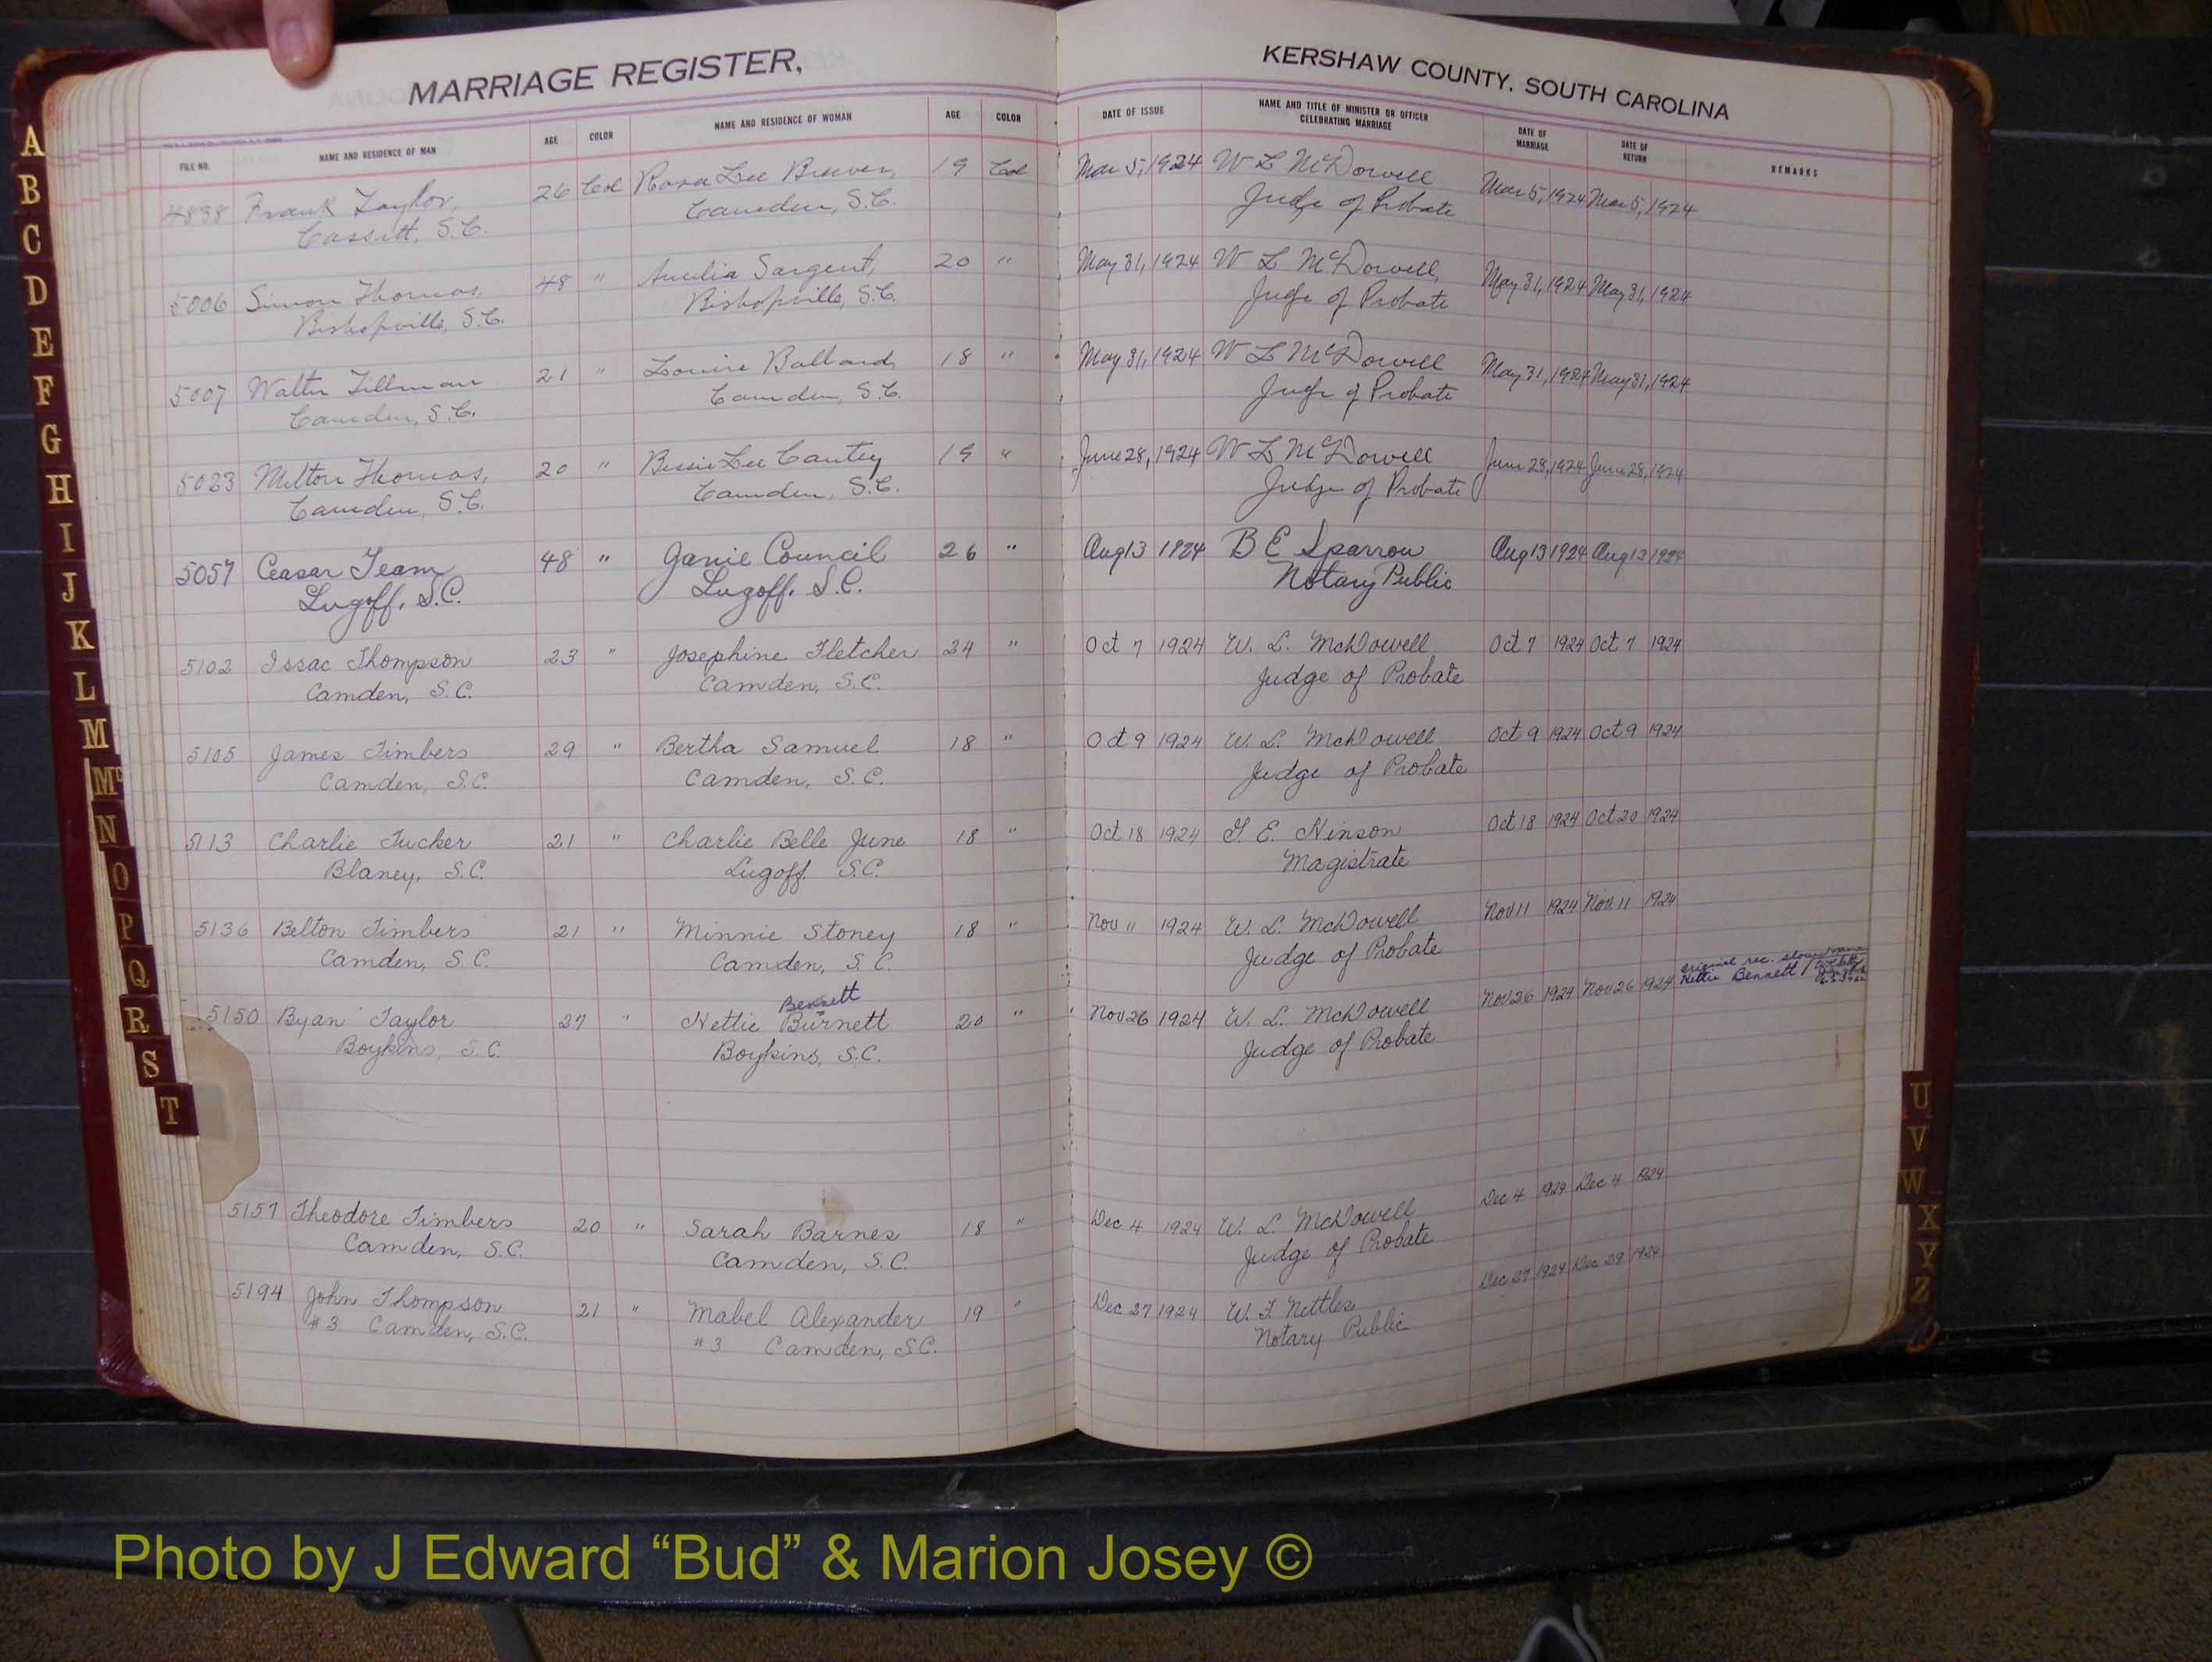 MARRIAGE REGISTER,
KERSHAW COUNTY, SOUTH CAROLINA
FILE NO. NAME AND RESIDENCE OF MAN AGE COLOR NAME AND RESIDENCE OF WOMAN AGE COLOR DATE OF ISSUE NAME AND TITLE OF MINISTER OR OFFICER CELEBRATING MARRIAGE DATE OF MARRIAGE DATE OF RETURN REMARKS
4838 Frank Taylor, 26 Col Rosa Lee Brewer, 19 Col Mar 5, 1924 W L McDowell Mar 5, 1924 Mar 5, 1924
Cassett, S.C. Camden, S.C. Judge of Probate
5006 Simon Thomas, 48 " Amelia Sargent, 20 " May 31, 1924 W L McDowell, May 31, 1924 May 31, 1924
Bishopville, S.C. Bishopville, S.C. Judge of Probate
5007 Walter Tillman 21 " Louise Ballard, 18 " May 31, 1924 W L McDowell May 31, 1924 May 31, 1924
Camden, S.C. Camden, S.C. Judge of Probate
5023 Milton Thomas, 20 " Bessie Lee Cantey 19 " June 28, 1924 W L McDowell June 28, 1924 June 28, 1924
Camden, S.C. Camden, S.C. Judge of Probate
5057 Ceasar Team 48 " Janie Council 26 " Aug 13 1924 B E Sparrow Aug 13 1924 Aug 13 1924
Lugoff, S.C. Lugoff, S.C. Notary Public
5102 Issac Thompson 23 " Josephine Fletcher 24 " Oct 7 1924 W. L. McDowell Oct 7 1924 Oct 7 1924
Camden, S.C. Camden, S.C. Judge of Probate
5105 James Timbers 29 " Bertha Samuel 18 " Oct 9 1924 W. L. McDowell Oct 9 1924 Oct 9 1924
Camden, S.C. Camden, S.C. Judge of Probate
5113 Charlie Tucker 21 " Charlie Belle June 18 " Oct 18 1924 T. E. Hinson Oct 18 1924 Oct 20 1924
Blaney, S.C. Lugoff S.C. Magistrate
5136 Belton Timbers 21 " Minnie Stoney 18 " Nov 11 1924 W. L. McDowell Nov 11 1924 Nov. 11 1924
Camden, S.C. Camden, S.C. Judge of Probate
Bennett original rec.
5150 Byan Taylor 27 " Nettie Burnett 20 " Nov 26 1924 W. L. McDowell Nov 26 1924 Nov 26 1924 Nettie Bennett
Boykins, S.C. Boykins, S.C. Judge of Probate
5157 Theodore Timbers 20 " Sarah Barnes 18 " Dec. 4 1924 W. L. McDowell Dec 4 1924 Dec 4 1924
Camden, S.C. Camden, S.C. Judge of Probate
5194 John Thompson 21 " Mabel Alexander 19 " Dec 27 1924 W. F. Nettles Dec 27 1924 Dec 29 1924
#3 Camden, S.C. #3 Camden, S.C. Notary Public
A
B
C
D
E
F
G
H
I
J
K
L
M
Mc
N
O
P
Q
R
S
T
U
V
W
X
Y
Z
Photo by J Edward “Bud” & Marion Josey ©